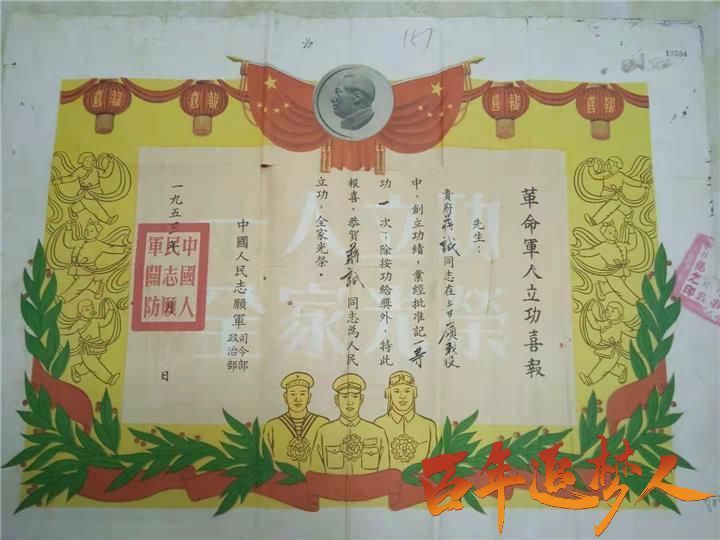 157
喜報
喜報
喜報
喜報
一人立功
全家光榮
革命軍人立功喜報
先生:
貴府蔣誠同志在上甘嶺戰役
中,創立功績,業經批准記一等
功一次;除按功給獎外,特此
報喜,恭賀蔣誠同志為人民
立功,全家光榮。
中國人民志願軍
司令部
政治部
一九五三年 月 日
中國人
民志願
軍關防
之印
百年追梦人